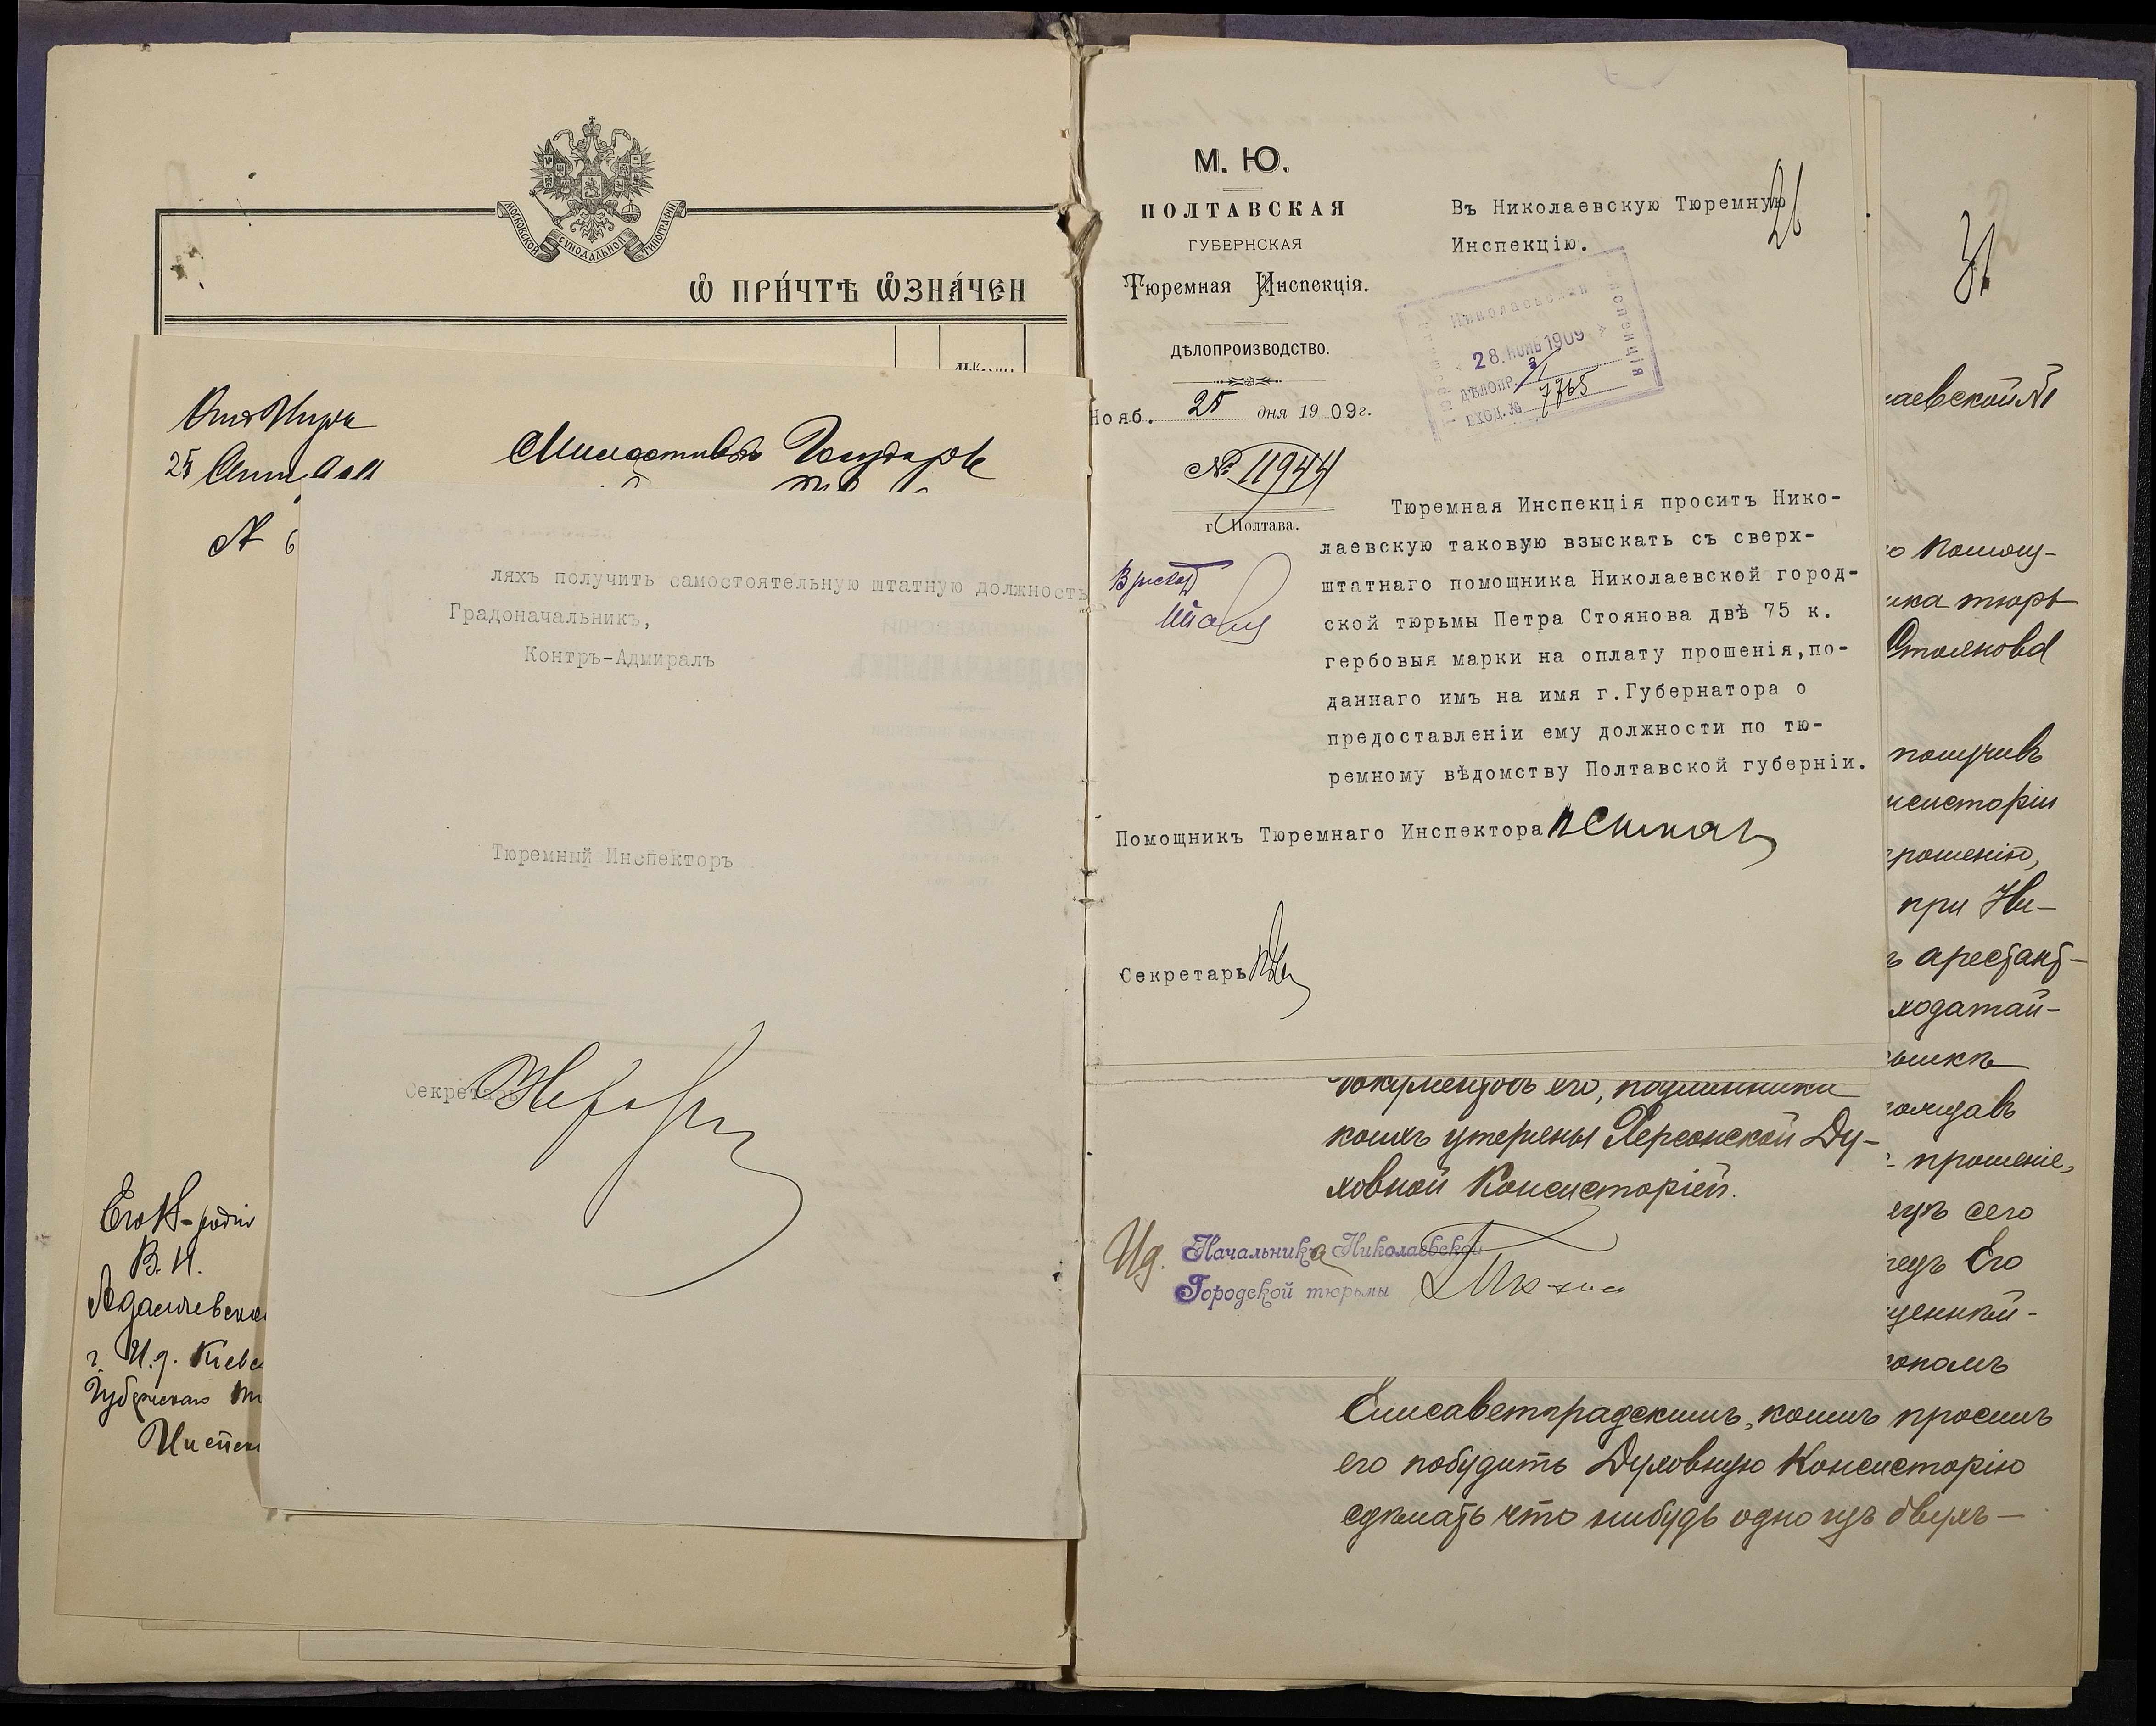 МОСКОВСКОЙ СУНОДАЛЬНОЙ ТИПОГРАФІИ
Ѡ ПРИ́ЧТѢ ѠЗНА́ЧЕН
25
Милостивый Государь
№ 6
ляхъ получить самостоятельную штатную должность
Градоначальникъ,
Контръ-Адмиралъ
Тюремный Инспекторъ
Секретарь
В. И.
г. И.д. Кіевс
Губернскаго
М. Ю.
ПОЛТАВСКАЯ
ГУБЕРНСКАЯ
Тюремная Инспекція.
ДѢЛОПРОИЗВОДСТВО.
Нояб. 25 дня 1909г.
№ 11944
г. Полтава.
Въ Николаевскую Тюремную
Инспекцію.
26
Николаевская
Инспекція
28. НОЯБ 1909
ДѢЛОПР. 3
ВХОД. № 7765
Тюремная Инспекція проситъ Нико-
лаевскую таковую взыскать съ сверх-
штатнаго помощника Николаевской город-
ской тюрьмы Петра Стоянова двѣ 75 к.
гербовыя марки на оплату прошенія,по-
даннаго имъ на имя г.Губернатора о
предоставленіи ему должности по тю-
ремному вѣдомству Полтавской губерніи.
Помощникъ Тюремнаго Инспектора
Секретарь
документовъ его, подлинники
коихъ утеряны Херсонской Ду-
ховной Консисторіей.
И.д. Начальника Николаевской
Городской тюрьмы
31
лаевской
о помощ-
ика тюрь
Стоянова
получивъ
нсисторіи
прошенію,
при Ни-
ъ арестант-
ходатай-
прошеніе,
сего
Его
щеннѣй-
Елисаветградскимъ, коимъ просилъ
его побудить Духовную Консисторію
сдѣлать что нибудь одно изъ двухъ—